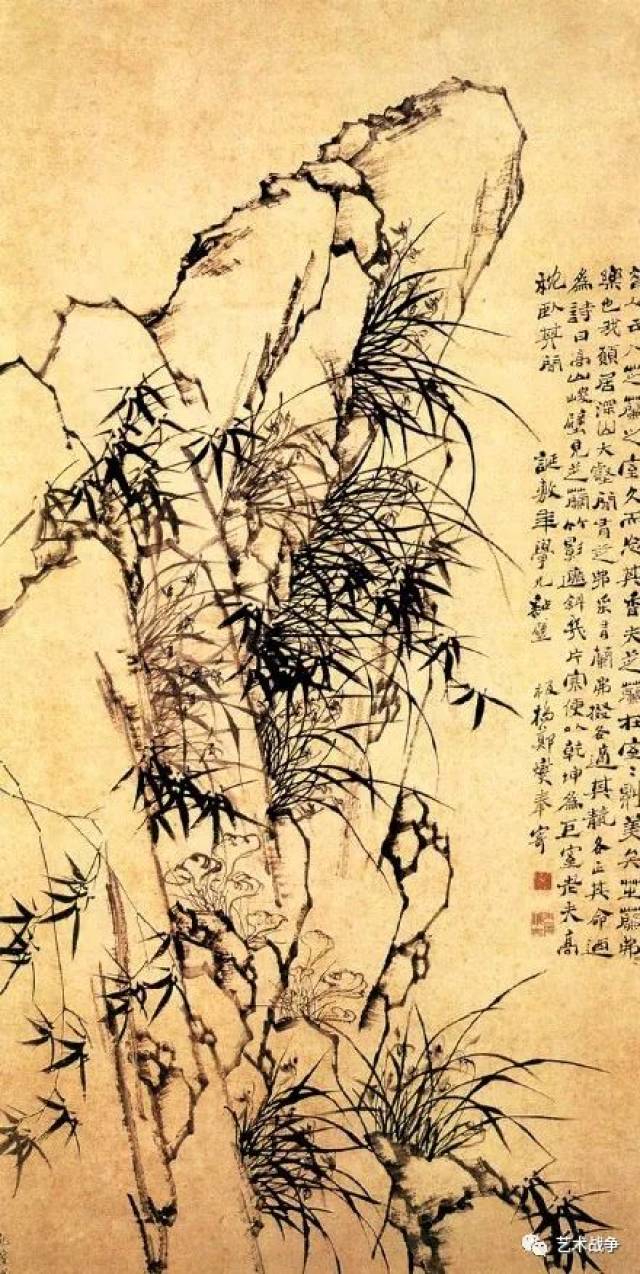 芝蘭之室久而忘其香夫芝蘭在室〻則美矣芝蘭弗
樂也我願居深山大壑間有芝弗采有蘭弗掇各適其各正其命迺
為詩曰高山峻壁見芝蘭竹影遮斜幾片寒便以乾坤為巨室老夫高
枕臥其間 誕敷年學兄 板橋鄭燮奉寄
艺术战争